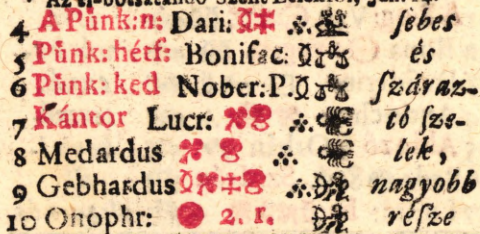 4 A Pünk: n: Dari: sebes
5 Pünk: hétf: Bonifac: és
6 Pünk: ked Nober: P. ſzáraz-
7 Kántor Lucr: tó ſze-
8 Medardus lek,
9 Gebhardus nagyobb
10 Onophr: 2. r. réſze